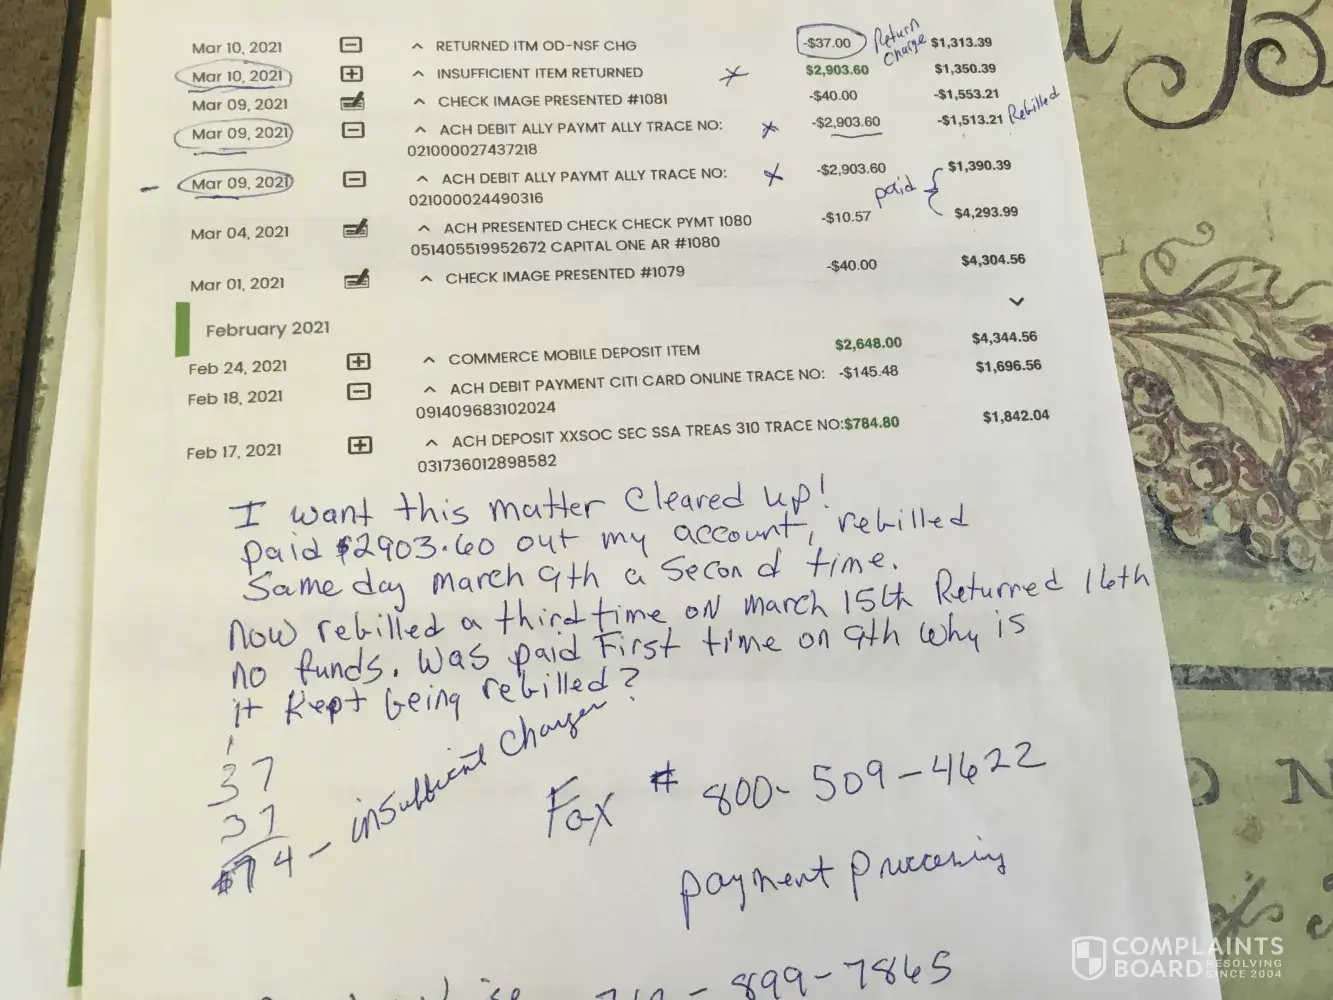 Mar 10, 2021 RETURNED ITM OD-NSF CHG -$37.00 Return Charge $1,313.39
Mar 10, 2021 INSUFFICIENT ITEM RETURNED $2,903.60 $1,350.39
Mar 09, 2021 CHECK IMAGE PRESENTED #1081 -$40.00 -$1,553.21
Mar 09, 2021 ACH DEBIT ALLY PAYMT ALLY TRACE NO: -$2,903.60 -$1,513.21 Rebilled
021000027437218
Mar 09, 2021 ACH DEBIT ALLY PAYMT ALLY TRACE NO: -$2,903.60 $1,390.39
021000024490316 paid
Mar 04, 2021 ACH PRESENTED CHECK CHECK PYMT 1080 -$10.57 $4,293.99
051405519952672 CAPITAL ONE AR #1080
Mar 01, 2021 CHECK IMAGE PRESENTED #1079 -$40.00 $4,304.56
February 2021
Feb 24, 2021 COMMERCE MOBILE DEPOSIT ITEM $2,648.00 $4,344.56
Feb 18, 2021 ACH DEBIT PAYMENT CITI CARD ONLINE TRACE NO: -$145.48 $1,696.56
091409683102024
Feb 17, 2021 ACH DEPOSIT XXSOC SEC SSA TREAS 310 TRACE NO:$784.80 $1,842.04
031736012898582
I want this matter Cleared up!
paid $2903.60 out my account, rebilled
Same day march 9th a Second time.
Now rebilled a third time on march 15th Returned 16th
no funds. Was paid First time on 9th Why is
it Kept being rebilled?
37
37
$74 - insufficient charges
Fax # 800-509-4622
payment processing
899-7865
COMPLAINTS
BOARD RESOLVING
SINCE 2004